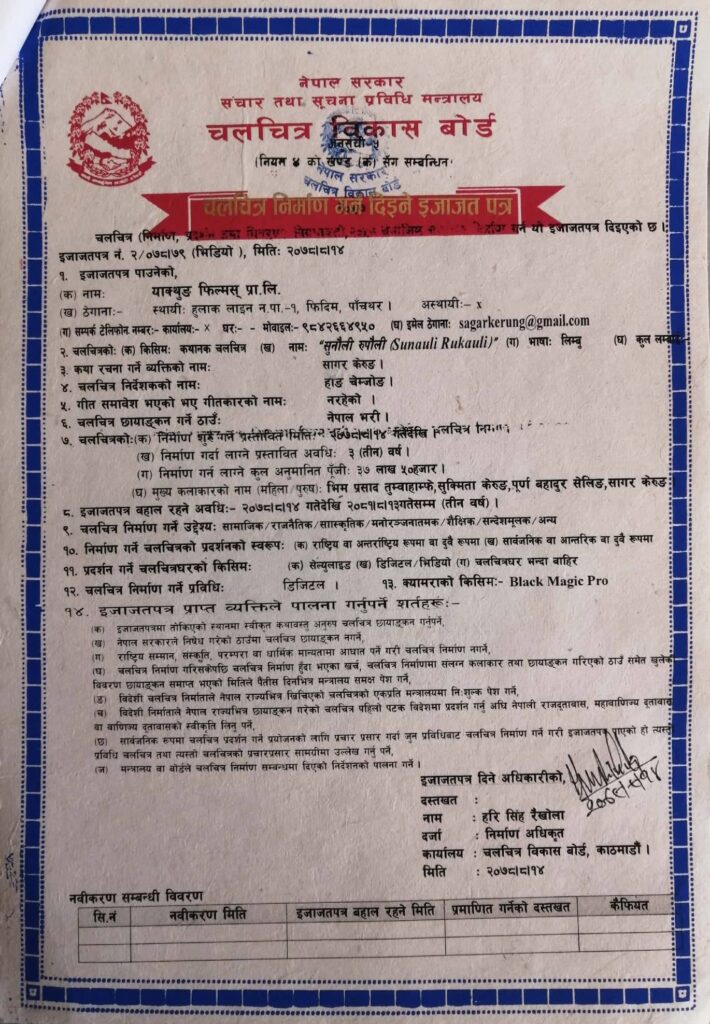 नेपाल सरकार
संचार तथा सूचना प्रविधि मन्त्रालय
चलचित्र विकास बोर्ड
अनुसूची ५
(नियम ४ को खण्ड (क) सँग सम्बन्धित
नेपाल सरकार
चलचित्र विकास बोर्ड
चलचित्र निर्माण गर्न दिइने इजाजत पत्र
चलचित्र (निर्माण, गर्न यो इजाजतपत्र दिइएको छ ।
इजाजतपत्र नं. २/०७८/७९ (भिडियो ), मितिः २०७८/८/१४
१. इजाजतपत्र पाउनेको,
(क) नामः याक्थुङ फिल्मस् प्रा.लि.
(ख) ठेगानाः- स्थायीः हुलाक लाइन न.पा.-१, फिदिम, पाँचथर । अस्थायीः- x
(ग) सम्पर्क टेलिफोन नम्बरः- कार्यालयः- x घरः- - मोवाइलः- ९८४२६६४९५० (घ) इमेल ठेगानाः sagarkerung@gmail.com
२. चलचित्रकोः (क) किसिमः कथानक चलचित्र (ख) नामः "सुनौली रुपौली (Sunauli Rukauli)" (ग) भाषाः लिम्बु (घ) कुल लम्बाइः
३. कथा रचना गर्ने व्यक्तिको नामः सागर केरुङ ।
४. चलचित्र निर्देशकको नामः हाङ चेम्जोङ ।
५. गीत समावेश भएको भए गीतकारको नामः नरहेको ।
६. चलचित्र छायाङ्कन गर्ने ठाउँः नेपाल भरी ।
७. चलचित्रकोः(क) निर्माण शुरु गर्ने प्रस्तावित मितिः २०७८/८/१४ गतेदेखि
(ख) निर्माण गर्दा लाग्ने प्रस्तावित अवधिः ३ (तीन) वर्ष ।
(ग) निर्माण गर्न लाग्ने कुल अनुमानित पूँजीः ३७ लाख ५०हजार ।
(घ) मुख्य कलाकारको नाम (महिला/पुरुष)ः भिम प्रसाद तुम्वाहाम्फे,सुक्मिता केरुङ,पूर्ण बहादुर सेलिङ,सागर केरुङ
८. इजाजतपत्र बहाल रहने अवधिः- २०७८/८/१४ गतेदेखि २०८१/८/१३गतेसम्म (तीन वर्ष) ।
९. चलचित्र निर्माण गर्ने उद्देश्यः सामाजिक/राजनैतिक/सास्कृतिक/मनोरञ्जनातमक/शैक्षिक/सन्देशमूलक/अन्य
१०. निर्माण गर्ने चलचित्रको प्रदर्शनको स्वरूपः (क) राष्ट्रिय वा अन्तर्राष्ट्रिय रूपमा वा दुवै रूपमा (ख) सार्वजनिक वा आन्तरिक वा दुवै रूपमा
११. प्रदर्शन गर्ने चलचित्रघरको किसिमः (क) सेल्युलाइड (ख) डिजिटल/भिडियो (ग) चलचित्रघर भन्दा बाहिर
१२. चलचित्र निर्माण गर्ने प्रविधिः डिजिटल । १३. क्यामराको किसिमः- Black Magic Pro
१४. इजाजतपत्र प्राप्त व्यक्तिले पालना गर्नुपर्ने शर्तहरूः-
(क) इजाजतपत्रमा तोकिएको स्थानमा स्वीकृत कथावस्तु अनुरुप चलचित्र छायाङ्कन गर्नुपर्ने,
(ख) नेपाल सरकारले निषेध गरेको ठाउँमा चलचित्र छायाङ्कन नगर्ने,
(ग) राष्ट्रिय सम्मान, संस्कृति, परम्परा वा धार्मिक मान्यतामा आधात पर्ने गरी चलचित्र निर्माण नगर्ने,
(घ) चलचित्र निर्माण गरिसकेपछि चलचित्र निर्माण हुँदा भएका खर्च, चलचित्र निर्माणमा संलग्न कलाकार तथा छायाङ्कन गरिएको ठाउँ समेत खुलेको
विवरण छायाङ्कन समाप्त भएको मितिले पैंतीस दिनभित्र मन्त्रालय समक्ष पेश गर्ने,
(ङ) विदेशी चलचित्र निर्माताले नेपाल राज्यभित्र खिचिएको चलचित्रको एकप्रति मन्त्रालयमा निःशुल्क पेश गर्ने,
(च) विदेशी निर्माताले नेपाल राज्यभित्र छायाङ्कन गरेको चलचित्र पहिलो पटक विदेशमा प्रदर्शन गर्नु अघि नेपाली राजदूतावास, महावाणिज्य दूतावास
वा वाणिज्य दूतावासको स्वीकृति लिनु पर्ने,
(छ) सार्वजनिक रूपमा चलचित्र प्रदर्शन गर्ने प्रयोजनको लागि प्रचार प्रसार गर्दा जुन प्रविधिबाट चलचित्र निर्माण गर्ने गरी इजाजतपत्र पाएको हो त्यस्तो
प्रविधि चलचित्र तथा त्यस्तो चलचित्रको प्रचारप्रसार सामग्रीमा उल्लेख गर्नु पर्ने,
(ज) मन्त्रालय वा बोर्डले चलचित्र निर्माण सम्बन्धमा दिएको निर्देशनको पालना गर्ने ।
इजाजतपत्र दिने अधिकारीको,
दस्तखत :
नाम : हरि सिंह रैखोला
दर्जा : निर्माण अधिकृत
कार्यालय : चलचित्र विकास बोर्ड, काठमाडौं ।
मिति : २०७८/८/१४
नवीकरण सम्बन्धी विवरण
सि.नं नवीकरण मिति इजाजतपत्र बहाल रहने मिति प्रमाणित गर्नेको दस्तखत कैफियत